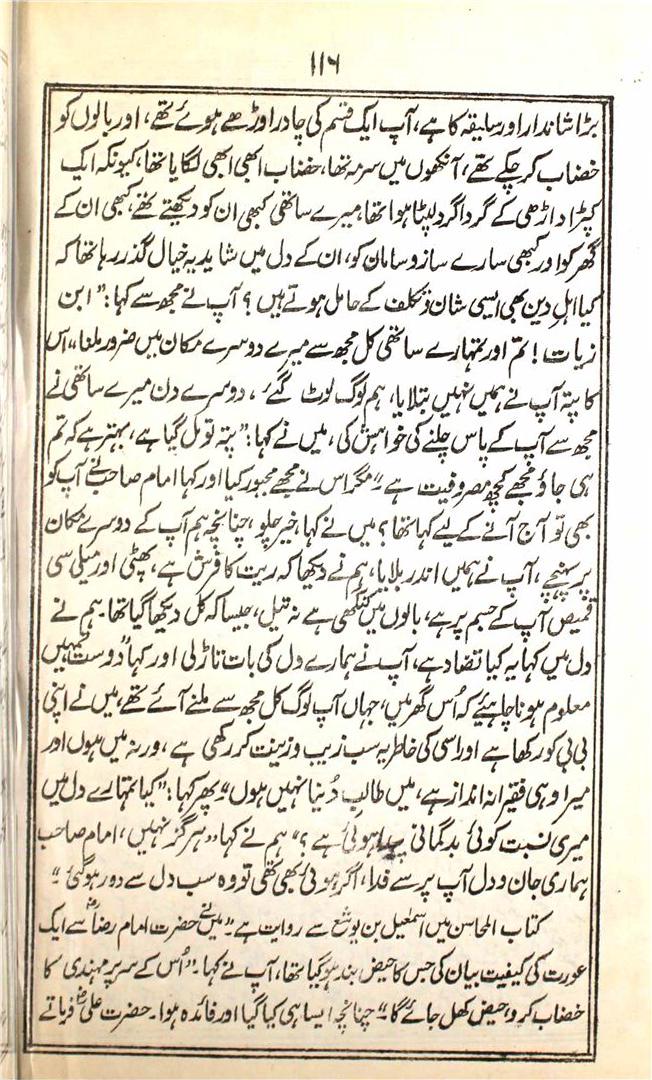 ۱۱۶
بڑا شاندار اور سلیقہ کا ہے، آپ ایک قسم کی چادر اوڑھے ہوئے تھے، اور بالوں کو
خضاب کر چکے تھے، آنکھوں میں سرمہ تھا، خضاب ابھی ابھی لگایا تھا، کیونکہ ایک
کپڑا داڑھی کے گرداگرد لپٹا ہوا تھا، میرے ساتھی کبھی ان کو دیکھتے تھے، کبھی ان کے
گھر کو اور کبھی سارے ساز و سامان کو، ان کے دل میں شاید یہ خیال گذر رہا تھا کہ
کیا اہل دین بھی ایسی شان و تکلف کے حامل ہوتے ہیں؟ آپ نے مجھ سے کہا: "ابن
زیات! تم اور تمہارے ساتھی کل مجھ سے میرے دوسرے مکان میں ضرور ملنا" اس
کا پتہ آپ نے ہمیں نہیں بتلایا، ہم لوگ لوٹ گئے، دوسرے دن میرے ساتھی نے
مجھ سے آپ کے پاس چلنے کی خواہش کی، میں نے کہا: "پتہ تو مل گیا ہے، بہتر ہے کہ تم
ہی جاؤ مجھے کچھ مصروفیت ہے" مگر اس نے مجھے مجبور کیا اور کہا امام صاحب نے آپ کو
بھی تو آج آنے کے لیے کہا تھا؟ میں نے کہا، خیر چلو، چنانچہ ہم آپ کے دوسرے مکان
پر پہنچے، آپ نے ہمیں اندر بلایا، ہم نے دیکھا کہ ریت کا فرش ہے، پھٹی اور میلی سی
قمیص آپ کے جسم پر ہے، بالوں میں کنگھی ہے نہ تیل، جیسا کہ کل دیکھا گیا تھا۔ ہم نے
دل میں کہا یہ کیا تضاد ہے، آپ نے ہمارے دل کی بات تاڑ لی اور کہا "دوست تمہیں
معلوم ہونا چاہئیے کہ اُس گھر میں، جہاں آپ لوگ کل مجھ سے ملنے آئے تھے، میں نے اپنی
بی بی کو رکھا ہے اور اسی کی خاطر یہ سب زیب و زینت کر رکھی ہے، ورنہ میں ہوں اور
میرا وہی فقیرانہ انداز ہے، میں طالب دُنیا نہیں ہوں" پھر کہا: "کیا تمہارے دل میں
میری نسبت کوئی بدگمانی پیدا ہوئی ہے؟" ہم نے کہا "ہرگز نہیں، امام صاحب
ہماری جان و دل آپ پر سے فدا، اگر ہوئی بھی تھی تو وہ سب دل سے دور ہوگئی"
کتاب المحاسن میں اسمٰعیل بن یوشع سے روایت ہے "میں نے حضرت امام رضاؑ سے ایک
عورت کی کیفیت بیان کی جس کا حیض بند ہوگیا تھا، آپ نے کہا۔ "اُس کے سر پر مہندی کا
خضاب کرو، حیض کھل جائے گا۔" چنانچہ ایسا ہی کیا گیا اور فائدہ ہوا۔ حضرت علیؑ فرماتے